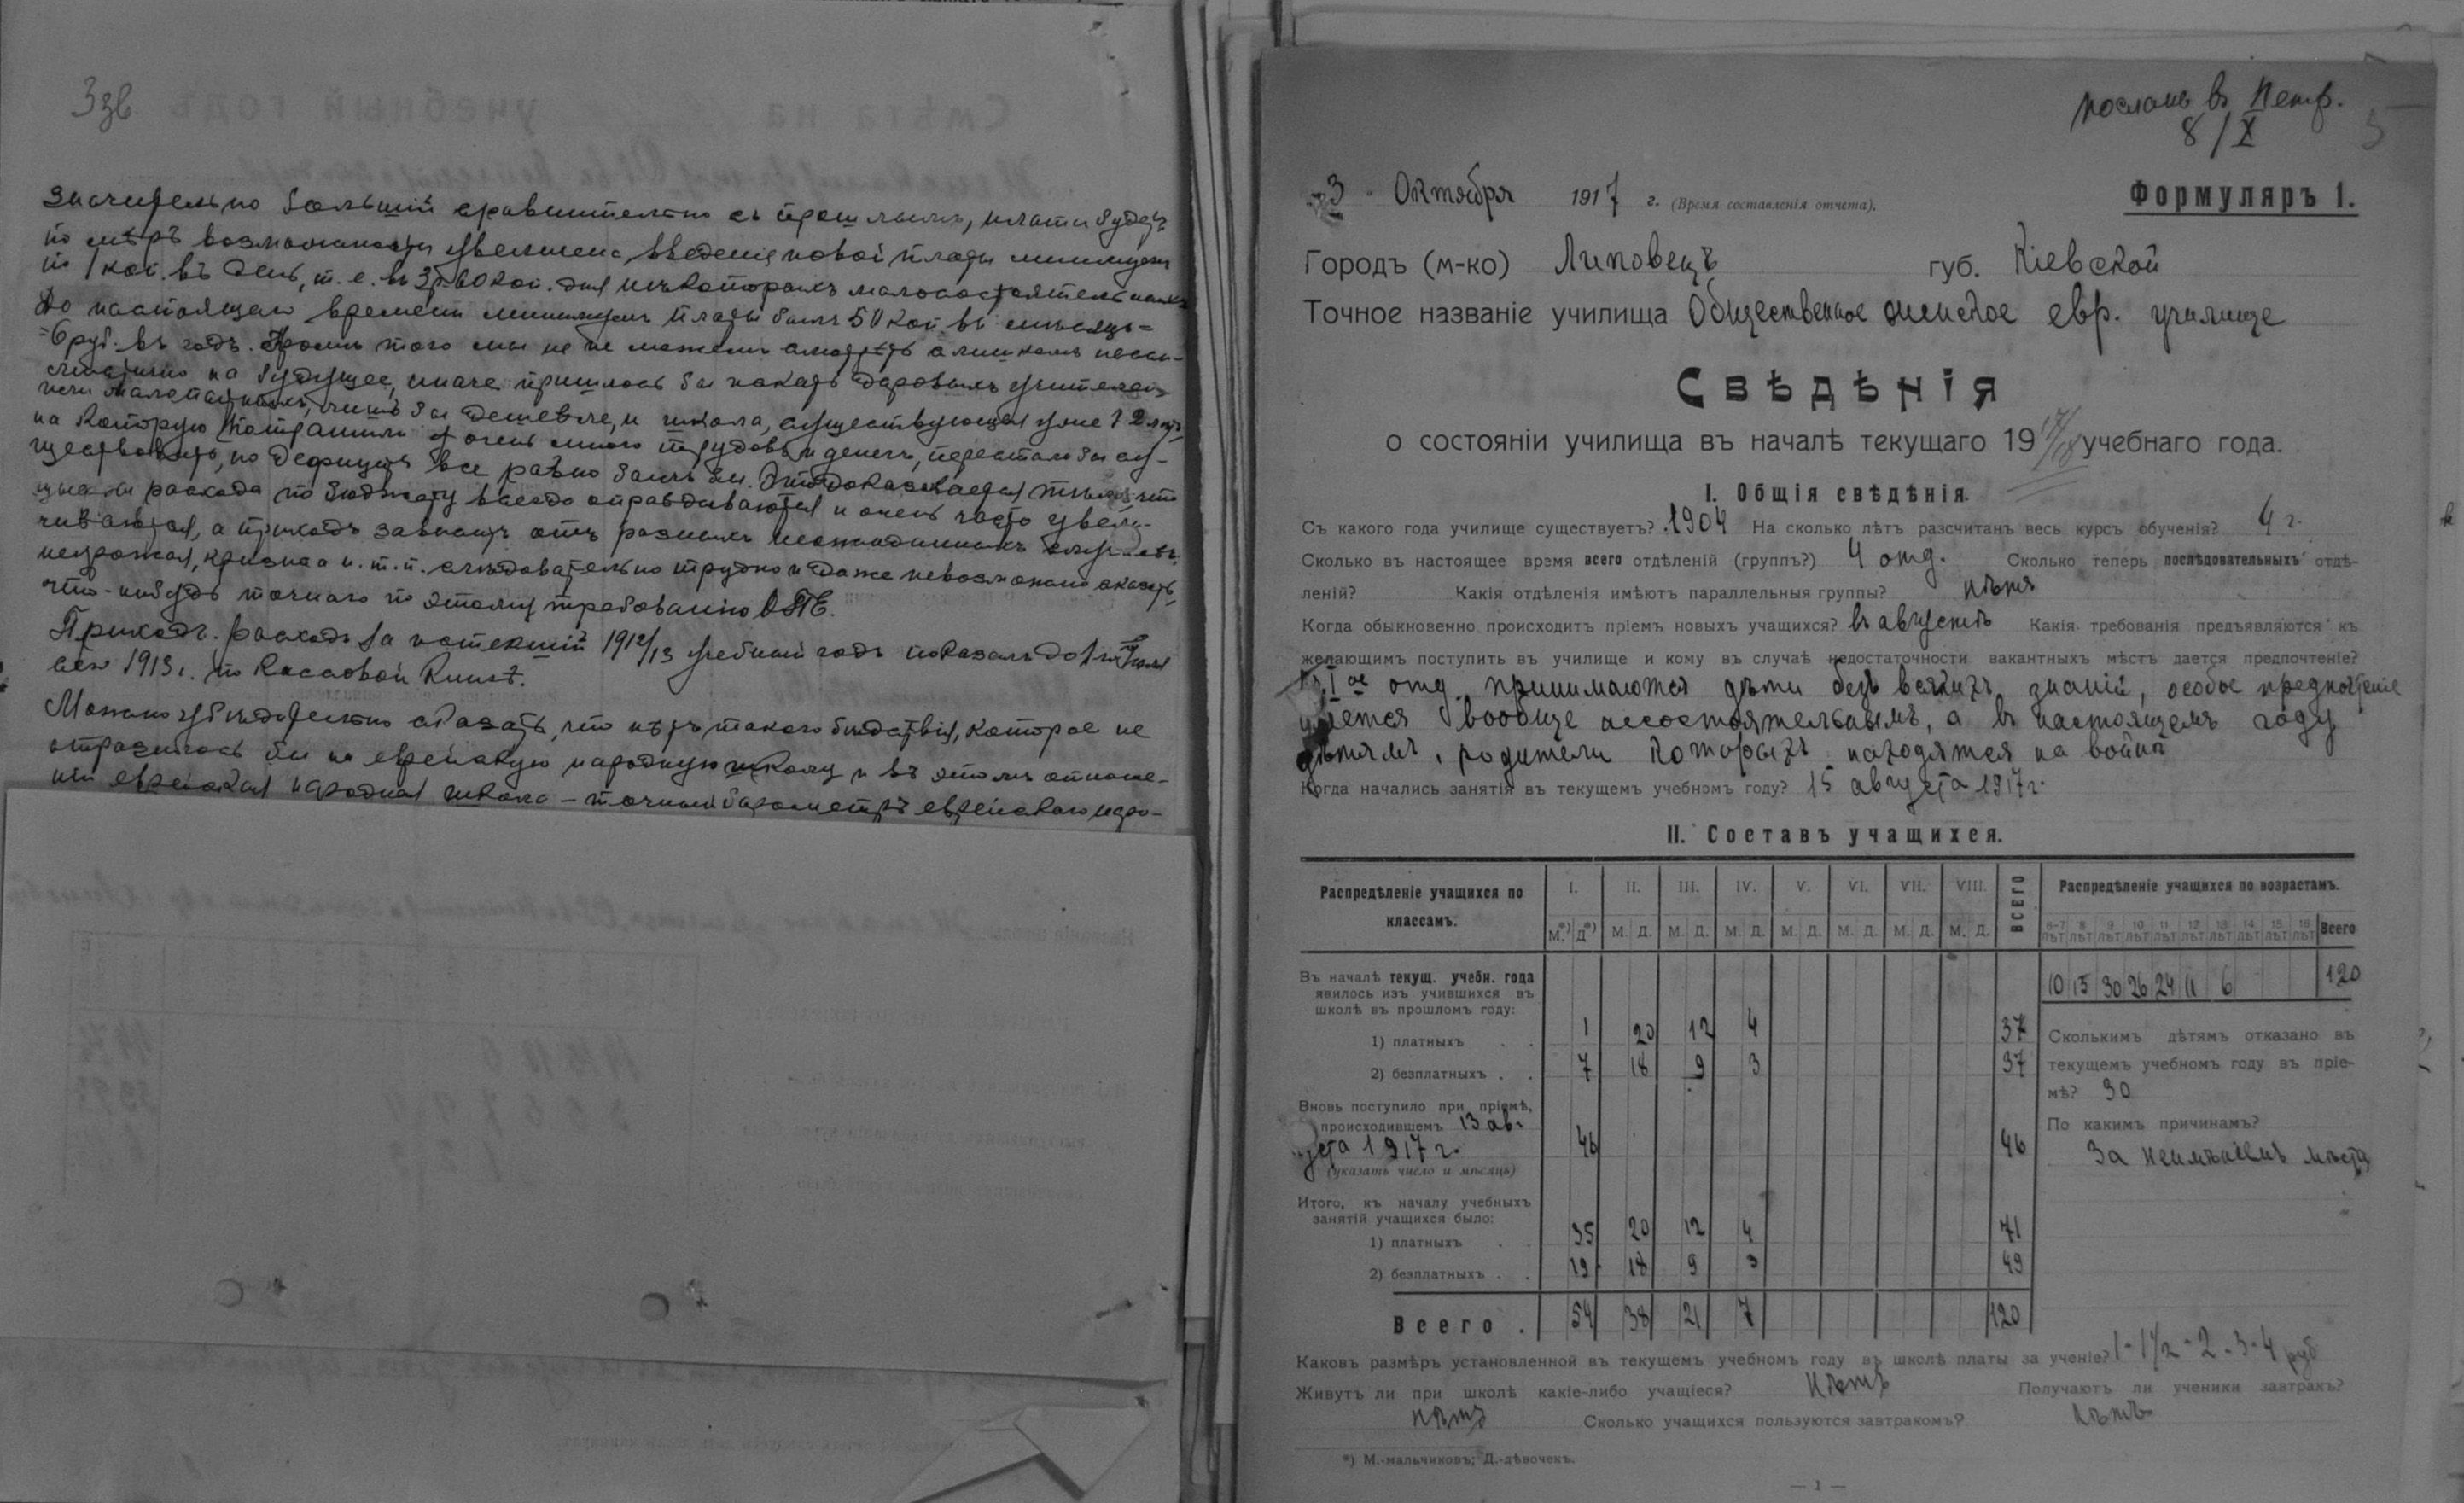 3зв
значительно большій сравнительно съ прошлымъ, плата будетъ
по мѣрѣ возможности увеличена, введеніе новой платы минимумъ
по 1 коп. въ день, т. е. въ 3р. 60 коп. для нѣкоторыхъ малосостоятельныхъ
До настоящаго времени минимумъ платы былъ 50 коп. въ мѣсяцъ =
=6 руб. въ годъ. Кромѣ того мы не можемъ смотрѣть слишкомъ песси-
мистично на будущее, иначе пришлось бы искать даровыхъ учителей
или малоопытныхъ, лишь бы дешевле, и школа, существующая уже 12 лѣтъ,
на которую потратили очень много трудовъ и денегъ, перестала бы су-
ществовать, но дефицитъ все равно былъ бы. Это доказывается тѣмъ, что
расхода по бюджету всегда оправдываются и очень часто увели-
чиваются, а приходъ зависитъ отъ разныхъ неожиданныхъ случаевъ:
неурожая, кризиса и. т. п. слѣдовательно трудно и даже невозможно сказать
что-нибудь точнаго по этому требованію ОПЕ.
Приходъ. расходъ за истекшій 1912/13 учебный годъ показалъ до 1го
1913г. по кассовой книгѣ.
Можно убѣдительно сказать, что нѣтъ такого бѣдствія, которое не
отразилось бы на еврейскую народную школу и въ этомъ отноше-
ніи еврейская народная школа – точный барометръ еврейскаго наро-
посланъ въ Петр.
8/X
3 " Октября 1917 г. (Время составленія отчета).
Формуляръ 1.
Городъ (м-ко) Липовецъ губ. Кіевской
Точное названіе училища Общественное женское евр. училище
Свѣдѣнія
о состояніи училища въ началѣ текущаго 1917/18 учебнаго года.
I. Общія свѣдѣнія.
Съ какого года училище существуетъ? 1904 На сколько лѣтъ разсчитанъ весь курсъ обученія? 4 г.
Сколько въ настоящее время всего отдѣленій (группъ?) 4 отд. Сколько теперь послѣдовательныхъ отдѣ-
леній? Какія отдѣленія имѣютъ параллельныя группы? нѣтъ
Когда обыкновенно происходитъ пріемъ новыхъ учащихся? въ августѣ Какія требованія предъявляются къ
желающимъ поступить въ училище и кому въ случаѣ недостаточности вакантныхъ мѣстъ дается предпочтеніе?
Въ Iое отд. принимаются дѣти безъ всякихъ знаній, особое предпочтеніе
дается вообще несостоятельнымъ, а въ настоящемъ году
дѣтямъ, родители которыхъ находятся на войнѣ
Когда начались занятія въ текущемъ учебномъ году? 15 августа 1917г.
II. Составъ учащихся.
Распредѣленіе учащихся по классамъ. I. II. III. IV. V. VI. VII. VIII. ВСЕГО Распредѣленіе учащихся по возрастамъ.
М.*) Д*) М. Д. М. Д. М. Д. М. Д. М. Д. М. Д. М. Д. 6-7 лѣт 8 лѣт 9 лѣт 10 лѣт 11 лѣт 12 лѣт 13 лѣт 14 лѣт 15 лѣт 16 лѣт Всего
Въ началѣ текущ. учебн. года
явилось изъ учившихся въ
школѣ въ прошломъ году:
10 15 30 26 24 11 6 120
1) платныхъ . . 1 20 12 4 37
2) безплатныхъ . . 7 18 9 3 37
Сколькимъ дѣтямъ отказано въ
текущемъ учебномъ году въ пріе-
мѣ? 30
Вновь поступило при пріемѣ,
происходившемъ 13 ав-
уста 1917 г. 46 46
(указать число и мѣсяцъ)
По какимъ причинамъ?
За неимѣніемъ мѣста
Итого, къ началу учебныхъ
занятій учащихся было:
1) платныхъ . . 35 20 12 4 71
2) безплатныхъ . . 19 18 9 3 49
Всего . 54 38 21 7 120
Каковъ размѣръ установленной въ текущемъ учебномъ году въ школѣ платы за ученіе? 1-1½-2-3-4 руб
Живутъ ли при школѣ какіе-либо учащіеся? Нѣтъ Получаютъ ли ученики завтракъ?
нѣтъ Сколько учащихся пользуются завтракомъ? Нѣтъ
*) М.-мальчиковъ; Д.-дѣвочекъ.
— 1 —